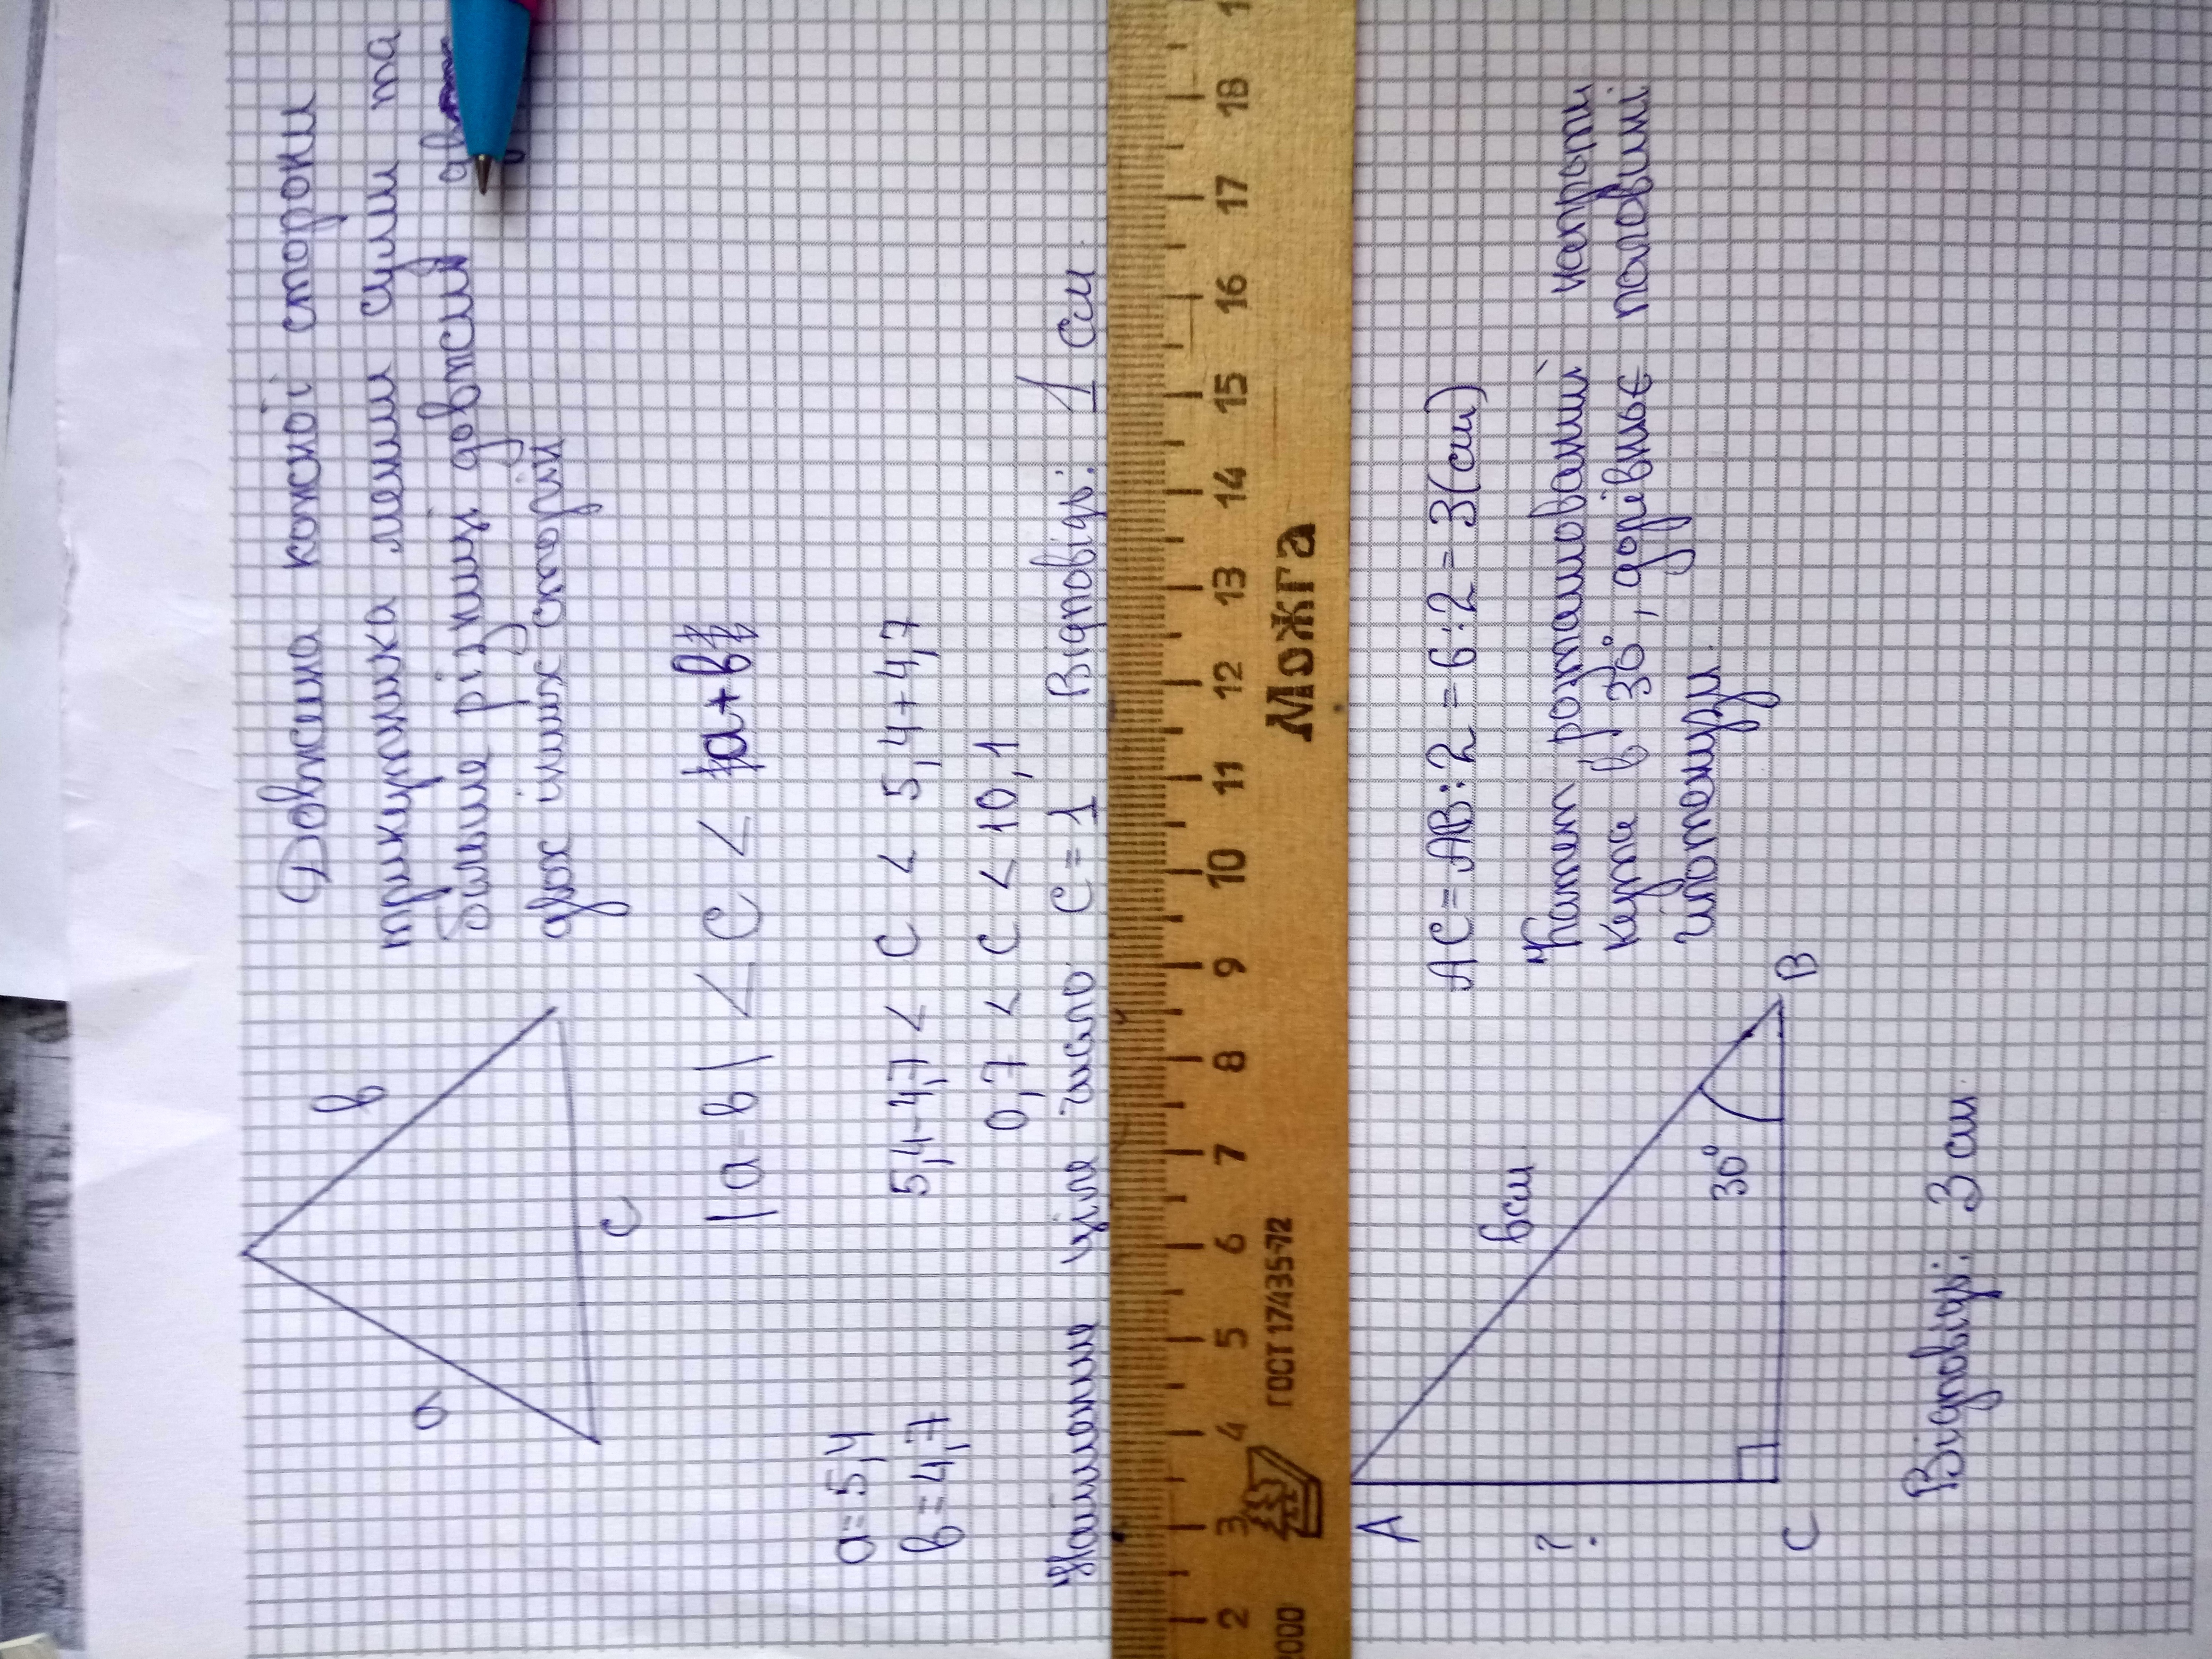 Довжина кожної сторони
трикутника менш суми та
більше різниці довжин
двох інших сторін
a
в
c
|a-в| < C < a+в
a=5,4
в=4,7
5,4-4,7 < C < 5,4+4,7
0,7 < C < 10,1
Найменше ціле число C=1 Відповідь: 1 см.
2 3 4 5 6 7 8 9 10 11 12 13 14 15 16 17 18
ГОСТ 17435-72
Можга
A
?
C
B
6см
30°
AC=AB:2=6:2=3(см)
Катет розташований напроти
кута в 30°, дорівнює половині
гіпотенузи.
Відповідь: 3 см.